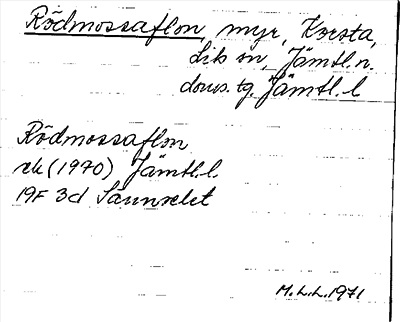 Rödmossaflon, myr, Korsta,
Lits sn, Jämtl. n.
doms. tg, Jämtl. l
Rödmossaflon
ek (1970) Jämtl. l.
19F 3d Sannselet
M.L.L. 1971